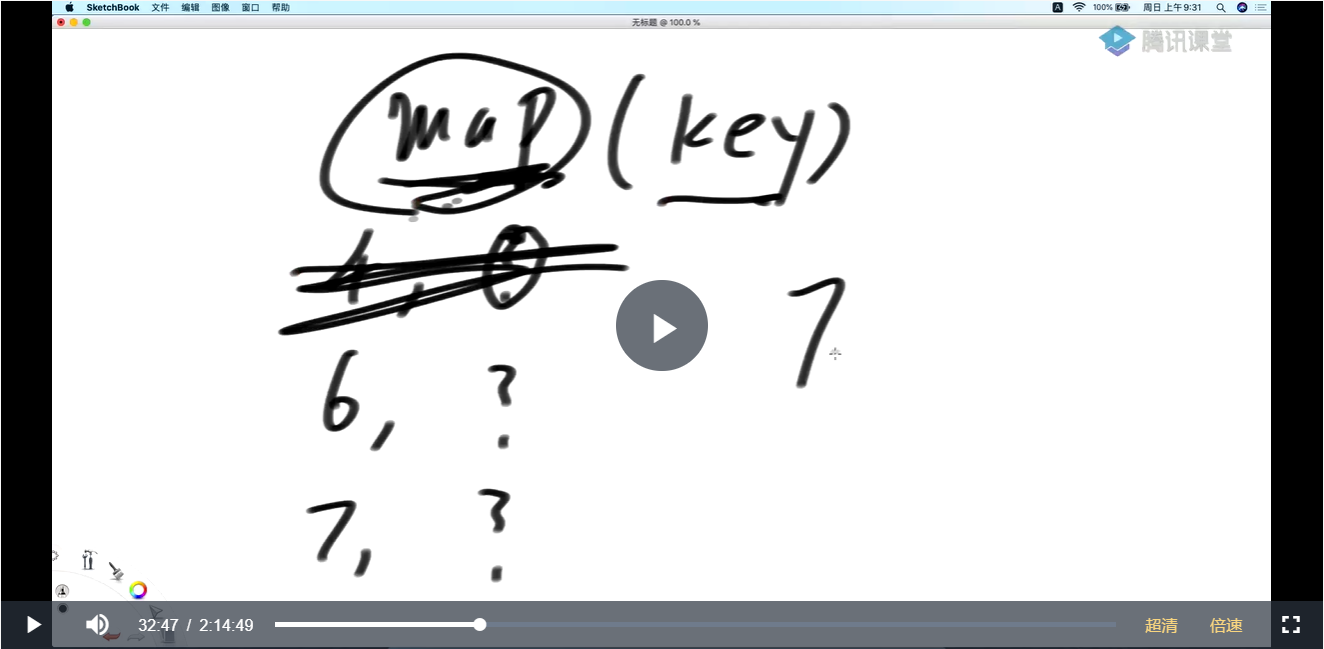 SketchBook 文件 编辑 图像 窗口 帮助 A 100% 周日 上午9:31
无标题 @ 100.0 %
腾讯课堂
map (key)
6, ?
7
7, ?
32:47 / 2:14:49 超清 倍速